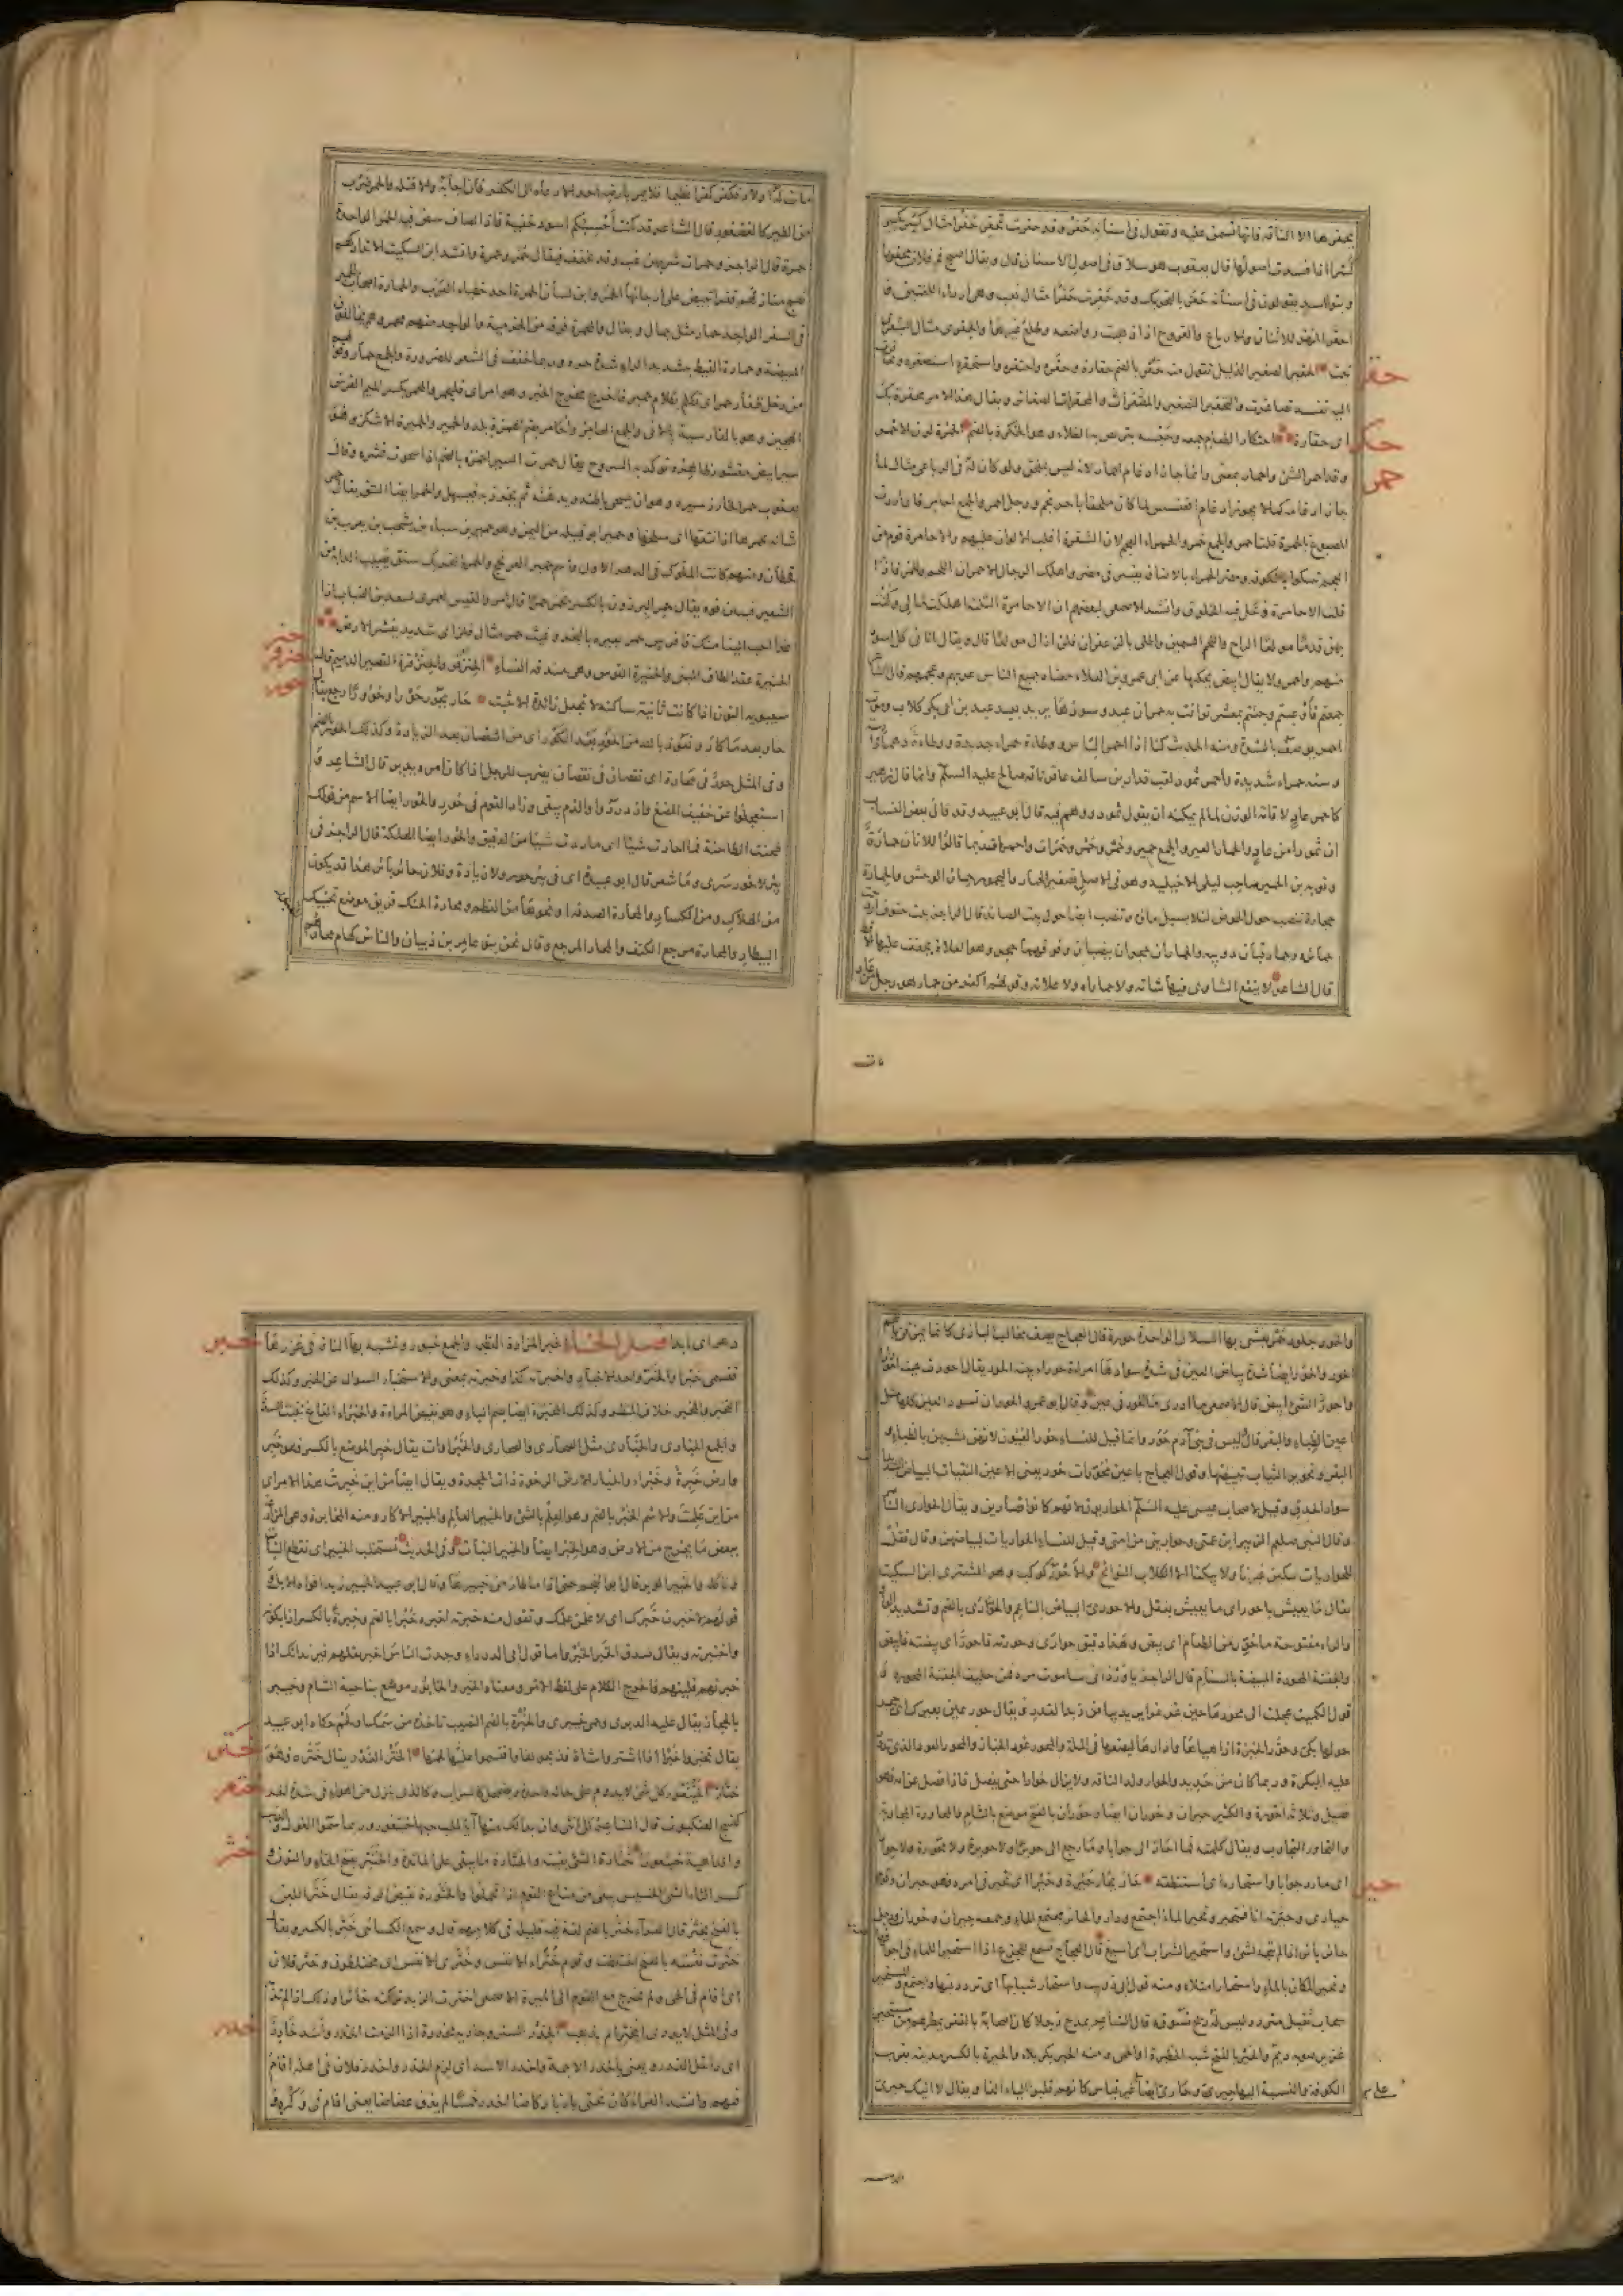 يحفرها الا الناقة فانها تسمن عليه وتقول فى اسنانه حفر وقد حفرت تحفر حفرا مثال كسر يكسر
كسرا اذا فسدت اصولها قال يعقوب هو سلاق فى اصول الاسنان قال ويقال اصبح فم فلان محفورا
وبنو اسد يقولون فى اسنانه حفر بالتحريك وقد حفرت حفرا مثال تعب وهى اردأ اللغتين
احفر المهر للاثناء والارباع والقروح اذا ذهبت رواضعه وطلع غيرها
الحقير الصغير الذليل تقول منه حقر بالضم حقارة وحقره واحتقره واستحقره استصغره
حقر
اليه نفسه تصاغرت والتحقير التصغير والمحقرات الصغائر ويقال هذا الامر محقرة بك
اى حقارة احتكار الطعام جمعه وحبسه يتربص به الغلاء وهو الحكرة بالضم الحمرة لون الاحمر
حكر
حمر
وقد احمر الشئ واحمار بمعنى وانما جاز ادغام احمار لانه ليس بملحق ولو كان له فى الرباعى مثال لما
جاز ادغامه كما لا يجوز ادغام اقعنسس لما كان ملحقا باحرنجم ورجل احمر والجمع الاحامر فان اردت
المصبوغ بالحمرة قلت احمر والجمع حمر والحمراء العجم لان الشقرة اغلب الالوان عليهم والاحامرة قوم من
العجم سكنوا بالكوفة ومضر الحمراء بالاضافة واهلك الرجال الاحمران اللحم والخمر فاذا
قلت الاحامرة دخل فيه الخلوق وانشد الاصمعى ان الاحامرة الثلثة اهلكت مالى وكنت
بهن قدما مولعا الراح واللحم السمين واطلى بالزعفران فلن ازال مولعا قال ويقال اتانى كل اسود
منهم واحمر ولا يقال ابيض يحكيها عن ابى عمرو بن العلاء معناه جميع الناس عربهم وعجمهم قال الشاعر
جمعتم فاوعيتم وجئتم بمعشر توافت به حمران عبد وسودها يريد بعبد عبد بن ابى بكر بن كلاب وموت
احمر يوصف بالشدة ومنه الحديث كنا اذا احمر الباس ووطاة حمراء جديدة ووطاءة دهماء
وسنة حمراء شديدة واحمر ثمود لقب قدار بن سالف عاقر ناقة صالح عليه السلم وانما قال زهير
كاحمر عاد لاقامة الوزن لما لم يمكنه ان يقول ثمود او وهم فيه قال ابو عبيد وقد قال بعض النساب
ان ثمود من عاد والحمار العير والجمع حمير وحمر وحمر وحمرات واحمرة وربما قالوا للاتان حمارة
وتوبة بن الحمير صاحب ليلى الاخيلية وهو فى الاصل تصغير الحمار واليحمور حمار الوحش والحمارة
حجارة تنصب حول الحوض لئلا يسيل ماؤه وتنصب ايضا حول بيت الصائد قال الراجز بيت حتوف
حمائره وحمار قبان دويبة والحماران حجران ينصبان وفوقهما حجر وهو العلاة يجفف عليها
قال الشاعر لا ينفع الشاوى فيها شاته ولا حماراه ولا علاته وقولهم اكفر من حمار هو رجل من عاد
مات
مات له اولاد فكفر كفرا عظيما فلا يمر بارضه احد الا دعاه الى الكفر فان اجابه والا قتله والحمر ضرب
من الطير كالعصفور قال الشاعر قد كنت احسبكم اسود خفية فاذا لصاف تبيض فيه الحمر الواحدة
حمرة قال الراجز وحمرات شربهن غب وقد يخفف فيقال حمر وحمرة وانشد ابن السكيت
تبيض على ارجائها الحمر وابن لسان الحمرة احد خطباء العرب والحمارة اصحاب الحمير
فى السفر الواحد حمار مثل جمال وبغال والمحمرة فرقة من الخرمية والواحد منهم محمر وهم يخالفون
المبيضة وحمارة القيظ بتشديد الراء شدة حره وربما خفف فى الشعر للضرورة والجمع حمار
من دخل ظفار حمر اى تكلم بكلام حمير والمحمر بكسر الميم الفرس
الهجين وهو بالفارسية والحمير والحميرة الاشكز وهو
سير ابيض مقشور ظاهره تؤكد به السروج يقال حمرت السير احمره بالضم اذا سحوت قشره وقال
يعقوب حمر الخارز سيره وهو ان يسحى باطنه ويدهنه ثم يخرز به فيسهل والحمر ايضا النتق يقال
شاته يحمرها اذا نتقها اى سلخها وحمير ابو قبيلة من اليمن وهو حمير بن سباء بن يشجب بن يعرب بن
قحطان ومنهم كانت الملوك فى الدهر الاول واسم حمير العرنجج والحمر بالتحريك سنق يصيب الدابة من
الشعير فينتن فوه يقال حمر البرذون بالكسر يحمر حمرا قال امرؤ القيس لعمرى لسعد بن الضباب اذا
غدا احب الينا منك فا فرس حمر وغيث حمر مثال فلز اى شديد يقشر الارض
حنر
الحنيرة عقد الطاق المبنى والحنيرة القوس وهى مندفة النساء الحنزقر والحنزقرة القصير الدميم قال
حنزقر
سيبويه النون اذا كانت ثانية ساكنة لا تجعل زائدة الا بثبت حار يحور حورا وحؤورا رجع يقال
حور
حار بعد ما كار ونعوذ بالله من الحور بعد الكور اى من النقصان بعد الزيادة وكذلك الحور بالضم
وفى المثل حور فى محارة اى نقصان فى نقصان يضرب للرجل اذا كان امره يدبر قال الشاعر
استعجلوا عن خفيف المضغ فازدردوا والذم يبقى وزاد القوم فى حور والحور ايضا الاسم من قولك
طحنت الطاحنة فما احارت شيئا اى ما ردت شيئا من الدقيق والحور ايضا الهلكة قال الراجز فى
بئر لا حور سرى وما شعر قال ابو عبيدة اى فى بئر حور ولا زيادة وفلان حائر بائر هذا قد يكون
من الهلاك ومن الكساد والمحارة الصدفة او نحوها من العظم ومحارة الحنك فويق موضع تحنيك
البيطار والمحارة مرجع الكتف والمحار المرجع وقال نحن بنو عامر بن ذبيان والناس كهام محارهم
والحور جلود حمر يغشى بها السلال الواحدة حورة قال العجاج يصف مخالب البازى كانما يمزقن
الحور والحور ايضا شدة بياض العين فى شدة سوادها امراة حوراء بينة الحور يقال احورت عينه
واحور الشئ ابيض قال الاصمعى ما ادرى ما الحور فى العين وقال ابو عمرو الحور ان تسود العين كلها مثل
اعين الظباء والبقر قال وليس فى بنى آدم حور وانما قيل للنساء حور العيون لانهن شبهن بالظباء و
البقر وتحوير الثياب تبييضها وقول العجاج باعين محورات حور يعنى الاعين النقيات البياض
سواد الحدق وقيل لاصحاب عيسى عليه السلم الحواريون لانهم كانوا قصارين ويقال الحوارى الناصر
وقال النبى صلعم الزبير ابن عمتى وحواريى من امتى وقيل للنساء الحواريات لبياضهن وقال فقل
للحواريات يبكين غيرنا ولا يبكنا الا الكلاب النوابح والاحور كوكب وهو المشترى ابن السكيت
يقال ما يعيش باحور اى ما يعيش بعقل والاحورى الابيض الناعم والحوارى بالضم وتشديد الواو
والراء مفتوحة ما حور من الطعام اى بيض وهذا دقيق حوارى وحورته فاحور اى بيضته فابيض
والجفنة المحورة المبيضة بالسنام قال الراجز
قول الكميت عجلت الى محورها حين غرغرا يريد بياض زبد القدر ويقال حور عين بعيرك اى حجر
حولها بكى وحور الخبزة اذا هياها وادارها ليضعها فى الملة والمحور عود الخباز والمحور العود الذى تدور
عليه البكرة وربما كان من حديد والحوار ولد الناقة ولا يزال حوارا حتى يفصل فاذا فصل عن امه فهو
فصيل وثلاثة احورة والكثير حيران وحوران ايضا وحوران بالفتح موضع بالشام والمحاورة المجاوبة
والتحاور التجاوب ويقال كلمته فما احار الى جوابا وما رجع الى حويرا ولا حويرة ولا محورة ولا حوارا
اى ما رد جوابا واستحاره اى استنطقه حار يحار حيرة وحيرا اى تحير فى امره فهو حيران وقوم
حير
حيارى وحيرته انا فتحير وتحير الماء اجتمع ودار والحائر مجتمع الماء وجمعه حيران وحوران ورجل
حائر بائر اذا لم يتجه لشئ واستحير الشراب اى اسيغ قال العجاج تسمع للجرع اذا استحيرا للماء فى اجوافها
وتحير المكان بالماء واستحار امتلاء ومنه قول ابى ذؤيب واستحار شبابها اى تردد فيها واجتمع والمستحير
سحاب ثقيل متردد ليس له ريح تسوقه قال الشاعر يمدح رجلا كان اصحابه بالقفر يمطرهم من مستحير
غزير صوبه ديم والحير بالفتح شبه الحظيرة او الحمى ومنه الحير بكربلاء والحيرة بالكسر مدينة بقرب
الكوفة والنسبة اليها حيرى وحارى ايضا على غير قياس كانهم قلبوا الياء الفا ويقال لا آتيك حيرى
دهر اى ابدا فصل الخاء الخبر المزادة العظيمة والجمع خبور وتشبه بها الناقة فى غزرها
خبر
فتسمى خبرا والخبر واحد الاخبار واخبرته كذا وخبرته بمعنى والاستخبار السؤال عن الخبر وكذلك
التخبر والمخبر خلاف المنظر وكذلك المخبرة ايضا بضم الباء وهو نقيض المرآة والخبراء القاع ينبت السدر
والجمع الخبارى والخبارى مثل الصحارى والصحارى والخبراوات يقال خبر الموضع بالكسر فهو خبر
وارض خبرة وخبراء والخبار الارض الرخوة ذات الجحرة ويقال ايضا من اين خبرت هذا الامر اى
من اين علمت والاسم الخبر بالضم وهو العلم بالشئ والخبير العالم والخبير الاكار ومنه المخابرة وهى المزارعة
ببعض ما يخرج من الارض وهو الخبر ايضا والخبير النبات وفى الحديث نستخلب الخبير اى نقطع النبات
وناكله والخبير الوبر قال ابو النجم حتى اذا ما طار من خبيرها وقال ابو عبيد الخبير زبد افواه الابل
قولهم لاخبرن خبرك اى لاعلمن علمك وتقول منه خبرته اخبره خبرا بالضم وخبرة بالكسر اذا بلوته
واختبرته ويقال صدق الخبر الخبر واما قول ابى الدرداء وجدت الناس اخبر تقلهم فيريد انك اذا
خبرتهم قليتهم فاخرج الكلام على لفظ الامر ومعناه الخبر والخابور موضع بناحية الشام وخيبر
بالحجاز يقال عليه الدبرى وحمى خيبرى والخبرة بالضم النصيب تاخذه من سمك او لحم حكاه ابو عبيد
يقال تخبروا خبرة اذا اشتروا شاة فذبحوها واقتسموا لحمها الختر الغدر يقال ختره فهو
ختر
ختار الخيتعور كل شئ لا يدوم على حالة واحدة ويضمحل كالسراب وكالذى ينزل من الهواء فى شدة الحر
ختعر
كنسج العنكبوت قال الشاعر كل انثى وان بدا لك منها آية الحب حبها خيتعور وربما سموا الغول
والداهية خيتعورا خثارة الشئ بقيته والخثارة ما يبقى على المائدة والخنثر بفتح الخاء والنون و
خثر
كسر الثاء الشئ الخسيس يبقى من متاع القوم اذا تحملوا والخثورة نقيض الرقة يقال خثر اللبن
بالفتح يخثر قال الفراء خثر بالضم لغة فيه قليلة فى كلامهم قال وسمع الكسائى خثر بالكسر ويقال
خثرت نفسه بالفتح اختلطت وقوم خثراء الانفس وخثرى الانفس اى مختلطون وخثر فلان
اى اقام فى الحى ولم يخرج مع القوم الى الميرة الاصمعى اخثرت الزبد تركته خاثرا وذلك اذا لم تذبه
وفى المثل لا يدرى ايخثر ام يذيب الخدر الستر وجارية مخدرة اذا الزمت الخدر واسد خادر
خدر
اى داخل الخدر ويعنى بالخدر الاجمة واخدر الاسد اى لزم الخدر واخدر فلان فى اهله اقام
فيهم وانشد الفراء كان تحتى بازيا ركاضا اخدر خمسا لم يذق عضاضا يعنى اقام فى وكره